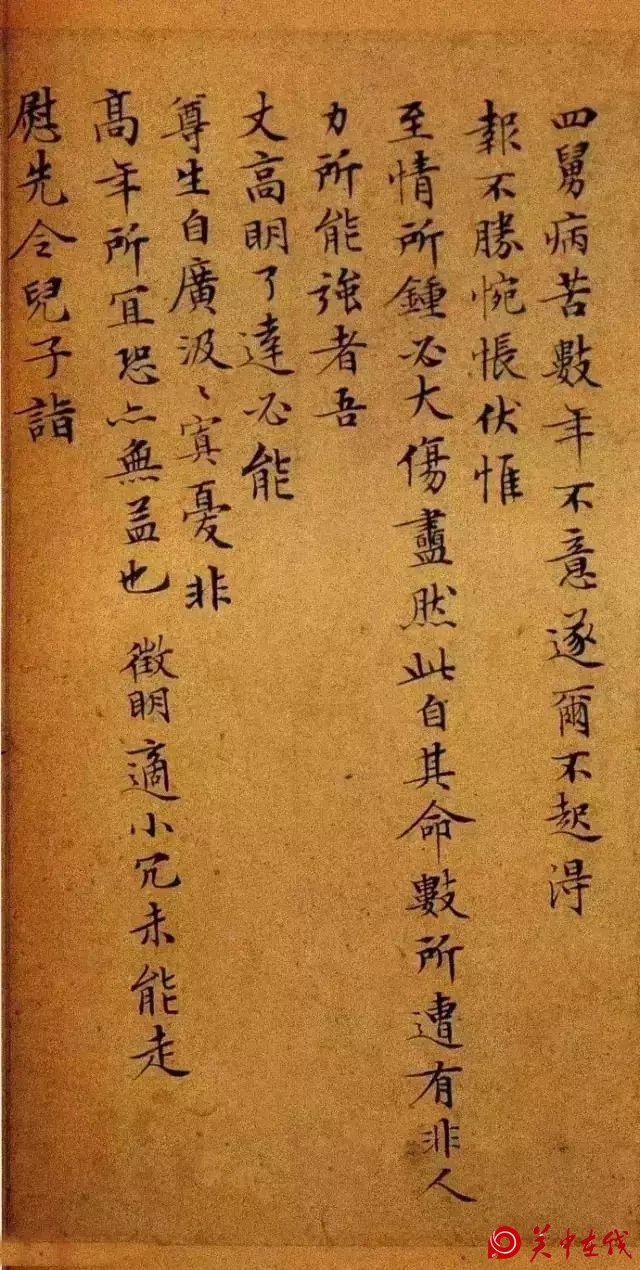 四舅病苦數年不意遂爾不起得
報不勝惋悵伏惟
至情所鍾必大傷盡然此自其命數所遭有非人
力所能強者吾
丈高明了達必能
尊生自廣汲〻寘憂非
高年所宜恐亦無益也 徵明適小冗未能走
慰先令兒子詣
关中在线